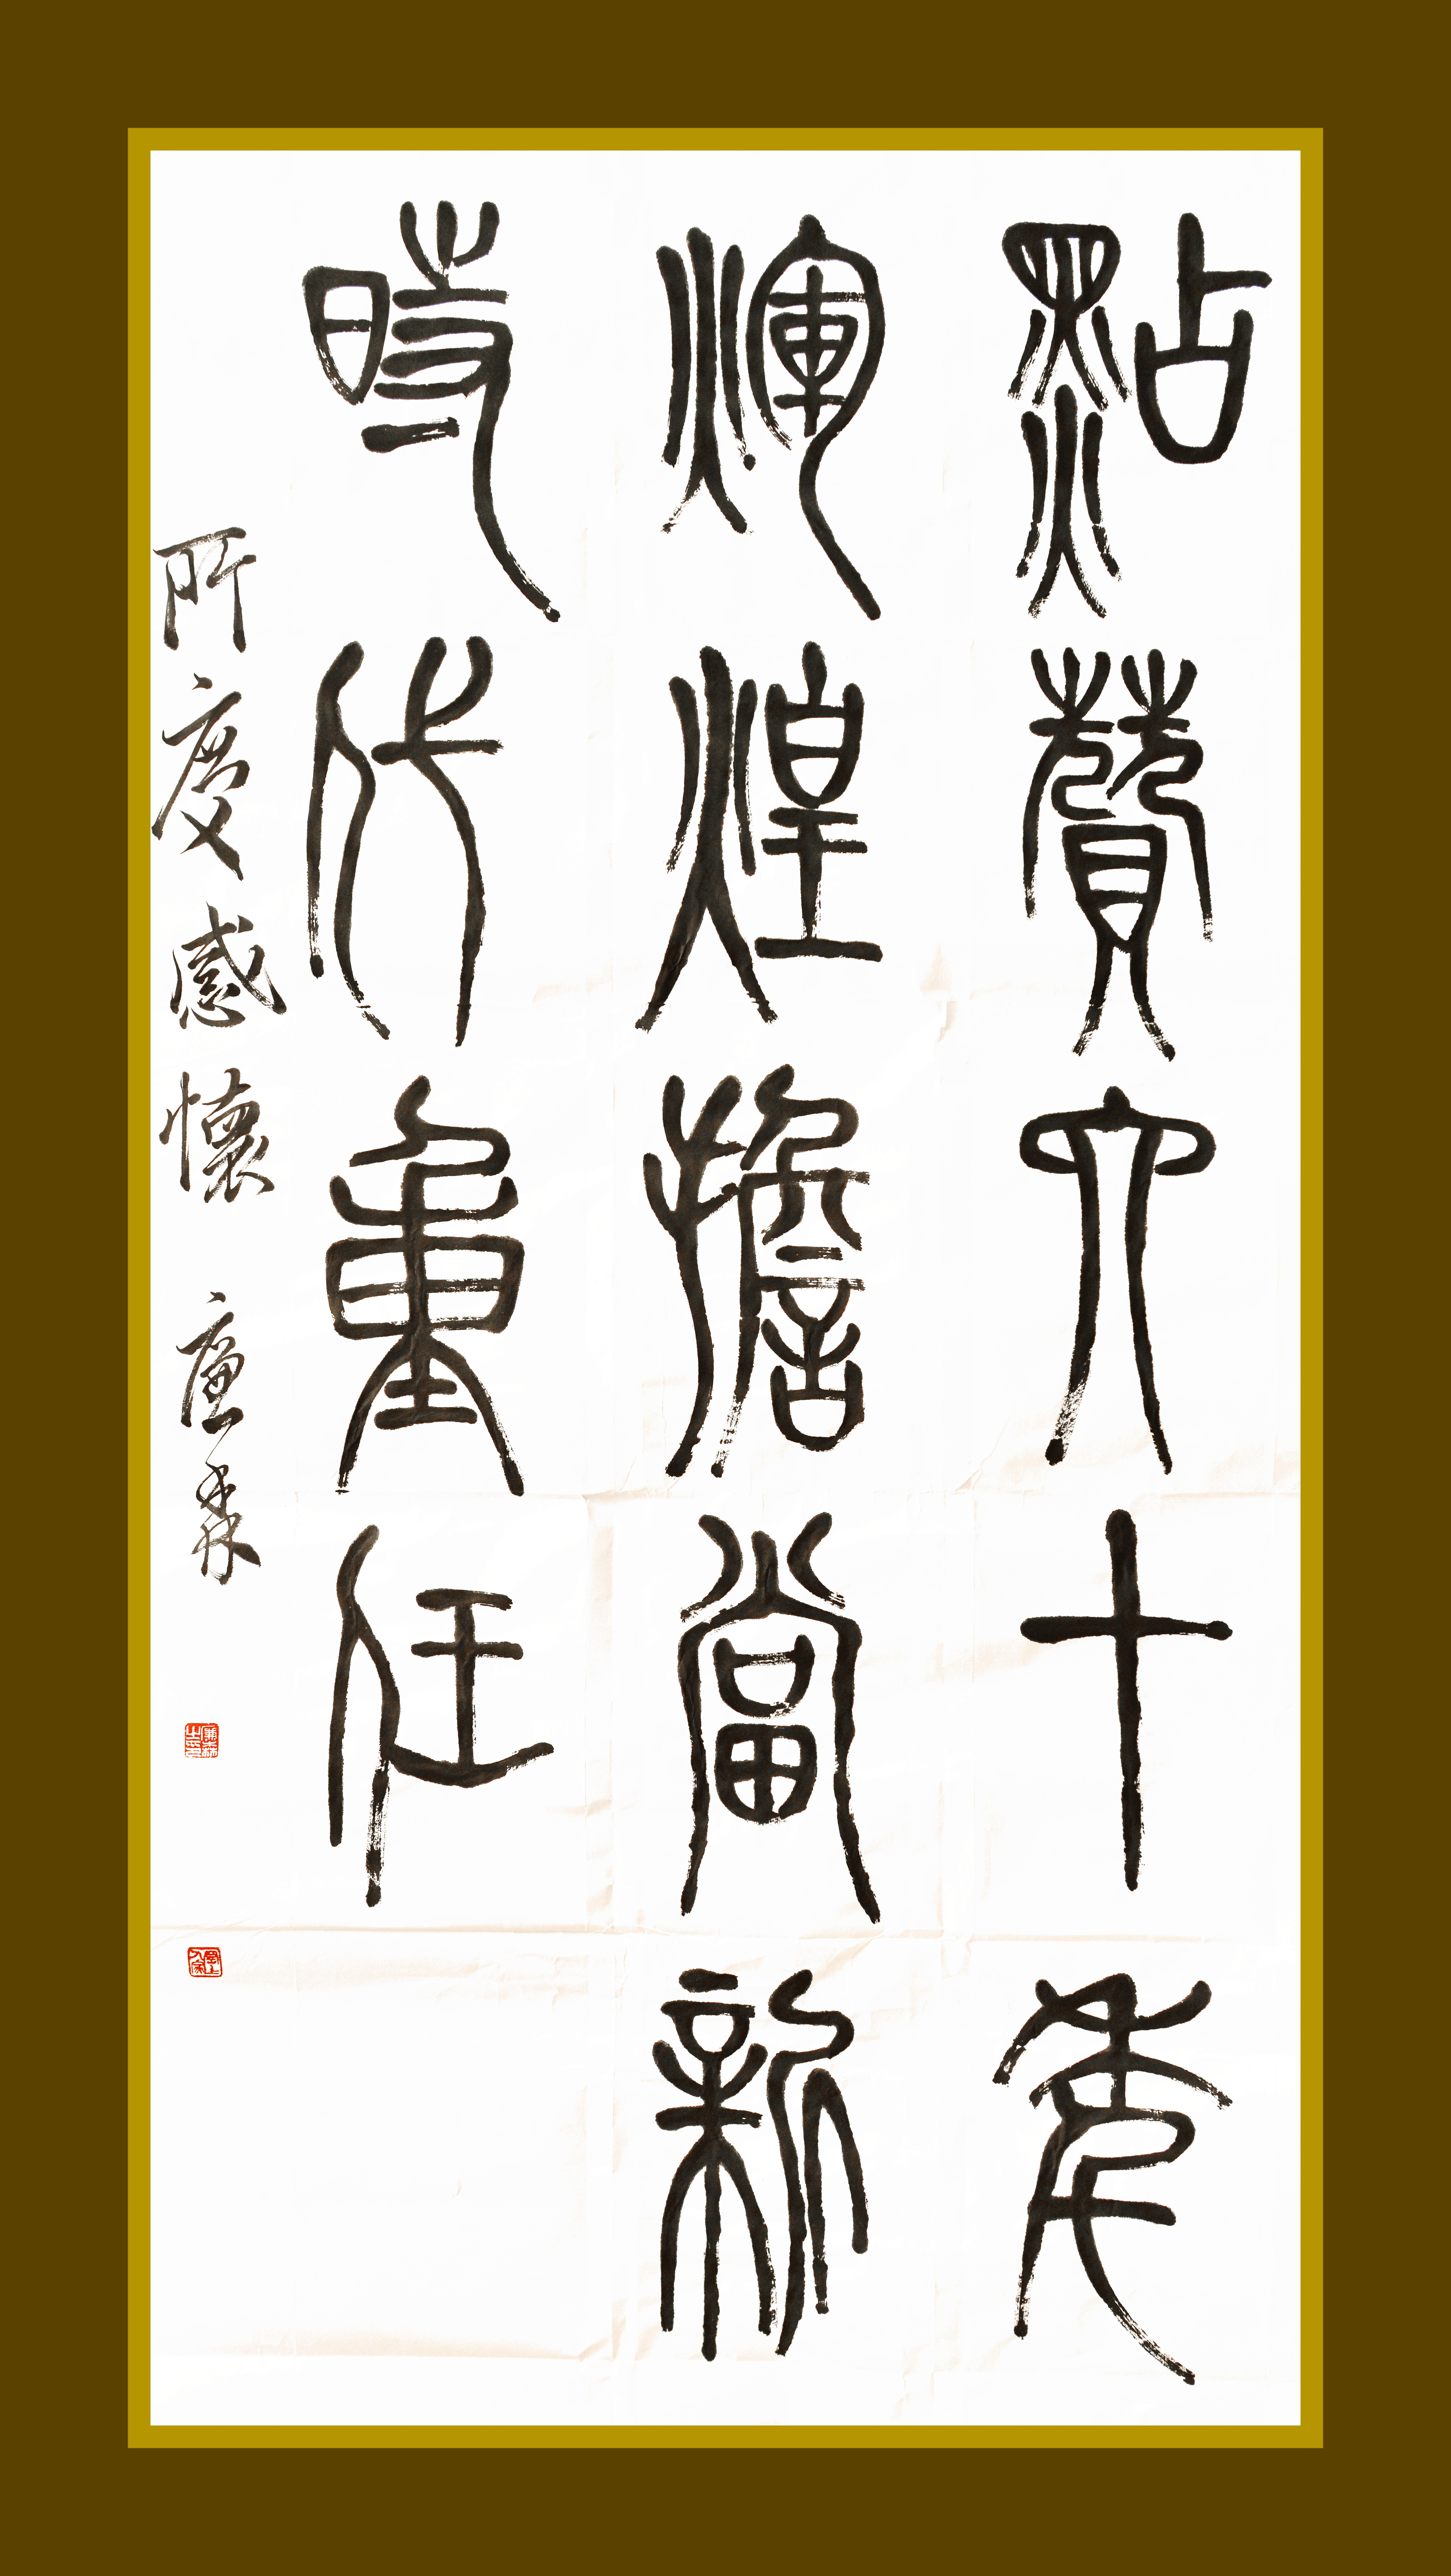 點贊六十年
輝煌擔當新
時代重任
所慶感懷 廉森